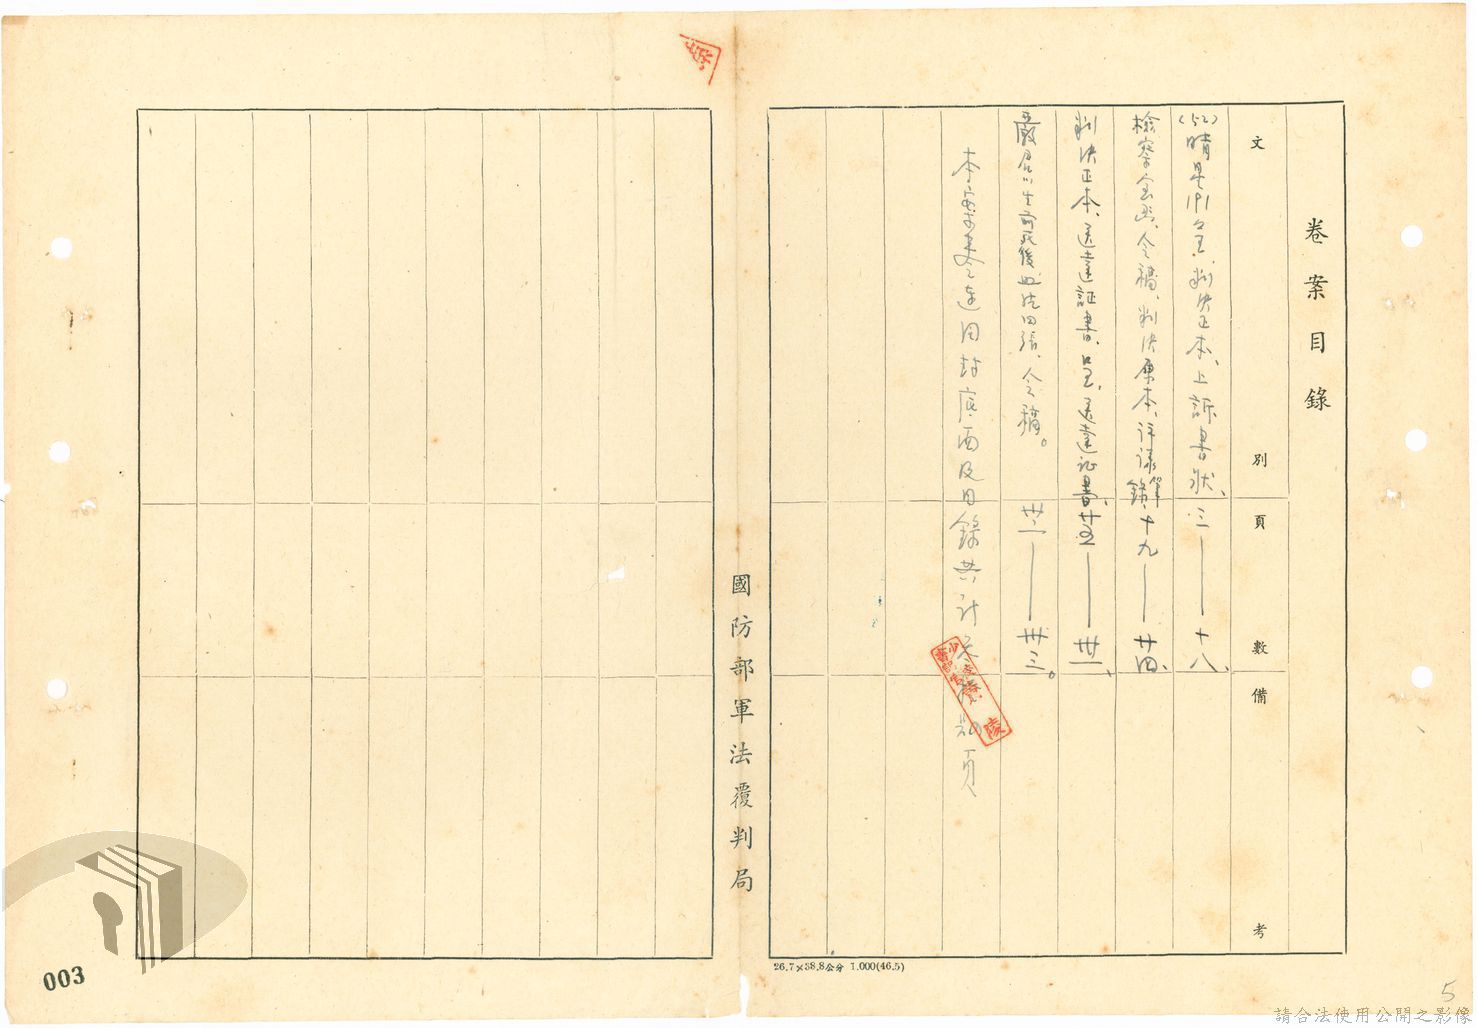 卷案目錄
文別 頁數 備考
(52)晴星191呈、判決正本、上訴書狀、 三——十八、
檢察令、令稿、判決原本、評議筆錄 十九——廿四、
判決正本、送達証書、呈、送達証書、 廿五——卅一、
嚴君川生前死後照片四張、令稿。 卅二——卅三。
本案連同封底面及目錄共計頁
國防部軍法覆判局
26.7×38.8公分 1.000(46.5)
003
5
請合法使用公開之影像